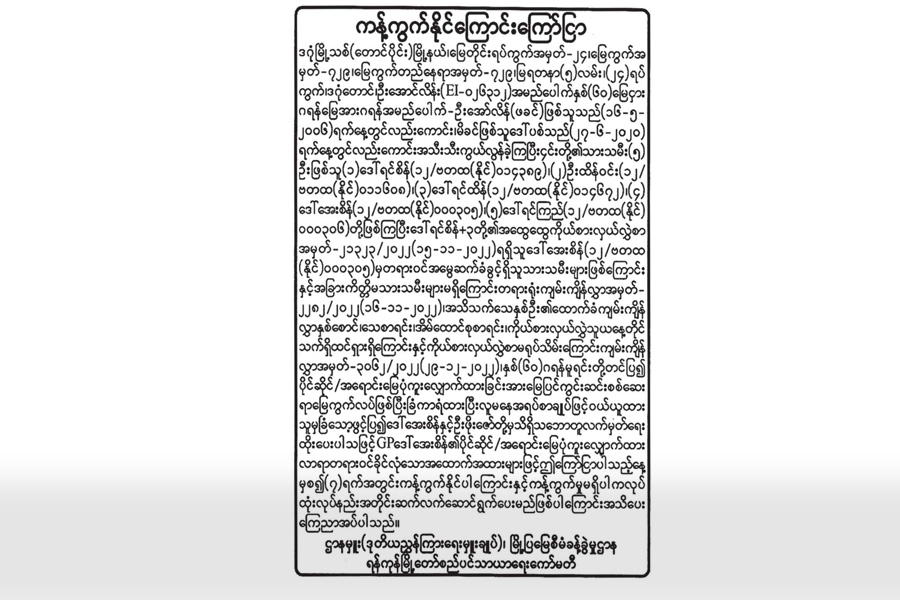 ကန့်ကွက်နိုင်ကြောင်းကြော်ငြာ
ဒဂုံမြို့သစ်(တောင်ပိုင်း)မြို့နယ်၊မြေတိုင်းရပ်ကွက်အမှတ်-၂၄၊မြေကွက်အ
မှတ်-၇၂၉၊မြေကွက်တည်နေရာအမှတ်-၇၂၉၊မြရတနာ(၅)လမ်း၊(၂၄)ရပ်
ကွက်၊ဒဂုံတောင်၊ဦးအောင်လိန်း(EI-၀၂၆၃၁၂)အမည်ပေါက်နှစ်(၆၀)မြေငှား
ဂရန်မြေအားဂရန်အမည်ပေါက်-ဦးအော်လိန်(ဖခင်)ဖြစ်သူသည်(၁၆-၅-
၂၀၀၆)ရက်နေ့တွင်လည်းကောင်း၊မိခင်ဖြစ်သူဒေါ်ပစ်သည်(၂၇-၆-၂၀၂၀)
ရက်နေ့တွင်လည်းကောင်းအသီးသီးကွယ်လွန်ခဲ့ကြပြီး၎င်းတို့၏သားသမီး(၅)
ဦးဖြစ်သူ(၁)ဒေါ်ရင်စိန်(၁၂/ဗတထ(နိုင်)၀၁၄၃၈၉)၊(၂)ဦးထိန်ဝင်း(၁၂/
ဗတထ(နိုင်)၀၁၁၆၀၈)၊(၃)ဒေါ်ရင်ထိန်(၁၂/ဗတထ(နိုင်)၀၁၄၆၇၂)၊(၄)
ဒေါ်အေးစိန်(၁၂/ဗတထ(နိုင်)၀၀၀၃၀၅)၊(၅)ဒေါ်ရင်ကြည်(၁၂/ဗတထ(နိုင်)
၀၀၀၃၀၆)တို့ဖြစ်ကြပြီးဒေါ်ရင်စိန်+၃တို့၏အထွေထွေကိုယ်စားလှယ်လွှဲစာ
အမှတ်-၂၁၃၂၃/၂၀၂၂(၁၅-၁၁-၂၀၂၂)ရရှိသူဒေါ်အေးစိန်(၁၂/ဗတထ
(နိုင်)၀၀၀၃၀၅)မှတရားဝင်အမွေဆက်ခံခွင့်ရှိသူသားသမီးများဖြစ်ကြောင်း
နှင့်အခြားကိတ္တိမသားသမီးများမရှိကြောင်းတရားရုံးကျမ်းကျိန်လွှာအမှတ်-
၂၂၈၂/၂၀၂၂(၁၆-၁၁-၂၀၂၂)၊အသိသက်သေနှစ်ဦး၏ထောက်ခံကျမ်းကျိန်
လွှာနှစ်စောင်၊သေစာရင်း၊အိမ်ထောင်စုစာရင်း၊ကိုယ်စားလှယ်လွှဲသူယနေ့တိုင်
သက်ရှိထင်ရှားရှိကြောင်းနှင့်ကိုယ်စားလှယ်လွှဲစာမရုပ်သိမ်းကြောင်းကျမ်းကျိန်
လွှာအမှတ်-၃၀၆၂/၂၀၂၂(၂၉-၁၂-၂၀၂၂)၊နှစ်(၆၀)ဂရန်မူရင်းတို့တင်ပြ၍
ပိုင်ဆိုင်/အရောင်းမြေပုံကူးလျှောက်ထားခြင်းအားမြေပြင်ကွင်းဆင်းစစ်ဆေး
ရာမြေကွက်လပ်ဖြစ်ပြီးခြံကာရံထားပြီးလူမနေအရပ်စာချုပ်ဖြင့်ဝယ်ယူထား
သူမှခြံသော့ဖွင့်ပြ၍ဒေါ်အေးစိန်နှင့်ဦးဖိုးဇော်တို့မှသိရှိသဘောတူလက်မှတ်ရေး
ထိုးပေးပါသဖြင့်GPဒေါ်အေးစိန်၏ပိုင်ဆိုင်/အရောင်းမြေပုံကူးလျှောက်ထား
လာရာတရားဝင်ခိုင်လုံသောအထောက်အထားများဖြင့်ဤကြော်ငြာပါသည့်နေ့
မှစ၍(၇)ရက်အတွင်းကန့်ကွက်နိုင်ပါကြောင်းနှင့်ကန့်ကွက်မှုမရှိပါကလုပ်
ထုံးလုပ်နည်းအတိုင်းဆက်လက်ဆောင်ရွက်ပေးမည်ဖြစ်ပါကြောင်းအသိပေး
ကြေညာအပ်ပါသည်။
ဌာနမှူး(ဒုတိယညွှန်ကြားရေးမှူးချုပ်)၊ မြို့ပြမြေစီမံခန့်ခွဲမှုဌာန
ရန်ကုန်မြို့တော်စည်ပင်သာယာရေးကော်မတီ